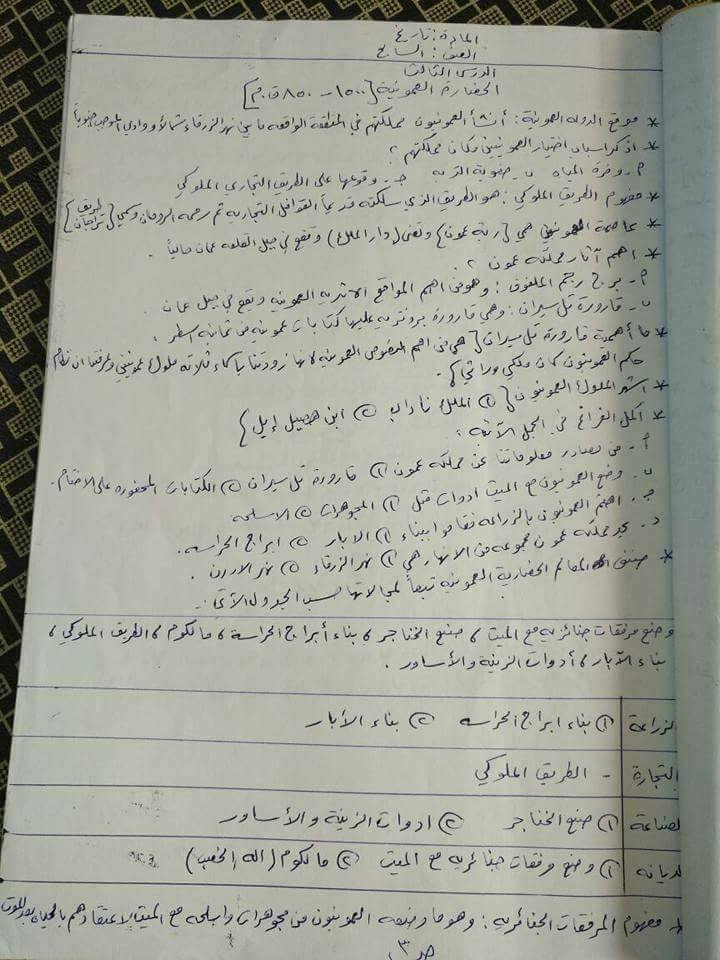 المادة : تاريخ
الصف : السابع
الدرس الثالث
الحضارة العمونية {١٥٠٠ – ٨٥٠ ق.م}
* موقع الدوله العمونية : أنشأ العمونيون مملكتهم في المنطقة الواقعه ما بين نهر الزرقاء شمالاً ووادي الموجب جنوباً
* اذكر اسباب اختيار العمونيين مكان مملكتهم ؟
أ- وفرة المياه ب- خصوبة التربه جـ- وقوعها على الطريق التجاري الملوكي
* مفهوم الطريق الملوكي : هو الطريق الذي سلكته قديماً القوافل التجاريه ثم رصفه الرومان وسمي {طريق تراجان}
* عاصمة العمونيين هي {ربة عمون} وتعني (دار الملك) وتقع في جبل القلعه عمان حالياً .
* اهم آثار مملكة عمون ؟
أ- برج رجم الملفوف : وهو من اهم المواقع الاثريه العمونية ويقع في جبل عمان .
ب- قارورة تل سيران : وهي قارورة برونزيه عليها كتابات عمونية من ثمانية اسطر .
* ما أهمية قارورة تل سيران {هي من اهم النصوص العمونية لانها زودتنا بأسماء ثلاثه ملوك عمونيين وعرفتنا ان نظام
حكم العمونيون كان ملكي وراثي} .
* اشهر الملوك العمونيون {① الملك ناداب ② ابن هصيل إيل}
* أكمل الفراغ في الجمل الآتيه :
أ- من مصادر معلوماتنا عن مملكة عمون ① قارورة تل سيران ② الكتابات المحفوره على الاختام .
ب- وضع العمونيون مع الميت ادوات مثل ① المجوهرات ② الاسلحه
جـ- اهتم العمونيون بالزراعه فقاموا ببناء ① الابار ② ابراج الحراسه .
د- يحد مملكة عمون مجموعه من الانهار هي ① نهر الزرقاء ② نهر الاردن .
* صنف المعالم الحضارية العمونيه تبعاً لمجالاتها حسب الجدول الآتي :
وضع مرفقات جنائزيه مع الميت ، صنع الخناجر ، بناء أبراج الحراسة ، مالكوم ، الطريق الملوكي ،
بناء الآبار ، أدوات الزينة والأساور .
الزراعة ① بناء ابراج الحراسه ② بناء الأبار
التجارة - الطريق الملوكي
لصناعة ① صنع الخناجر ② ادوات الزينة والأساور
لديانه ① وضع مرفقات جنائزيه مع الميت ② مالكوم (اله الخصب)
* مفهوم المرفقات الجنائزيه : وهو ما وضعه العمونيون من مجوهرات واسلحه مع الميت لاعتقادهم بالحياه بعد الموت
ص ٣